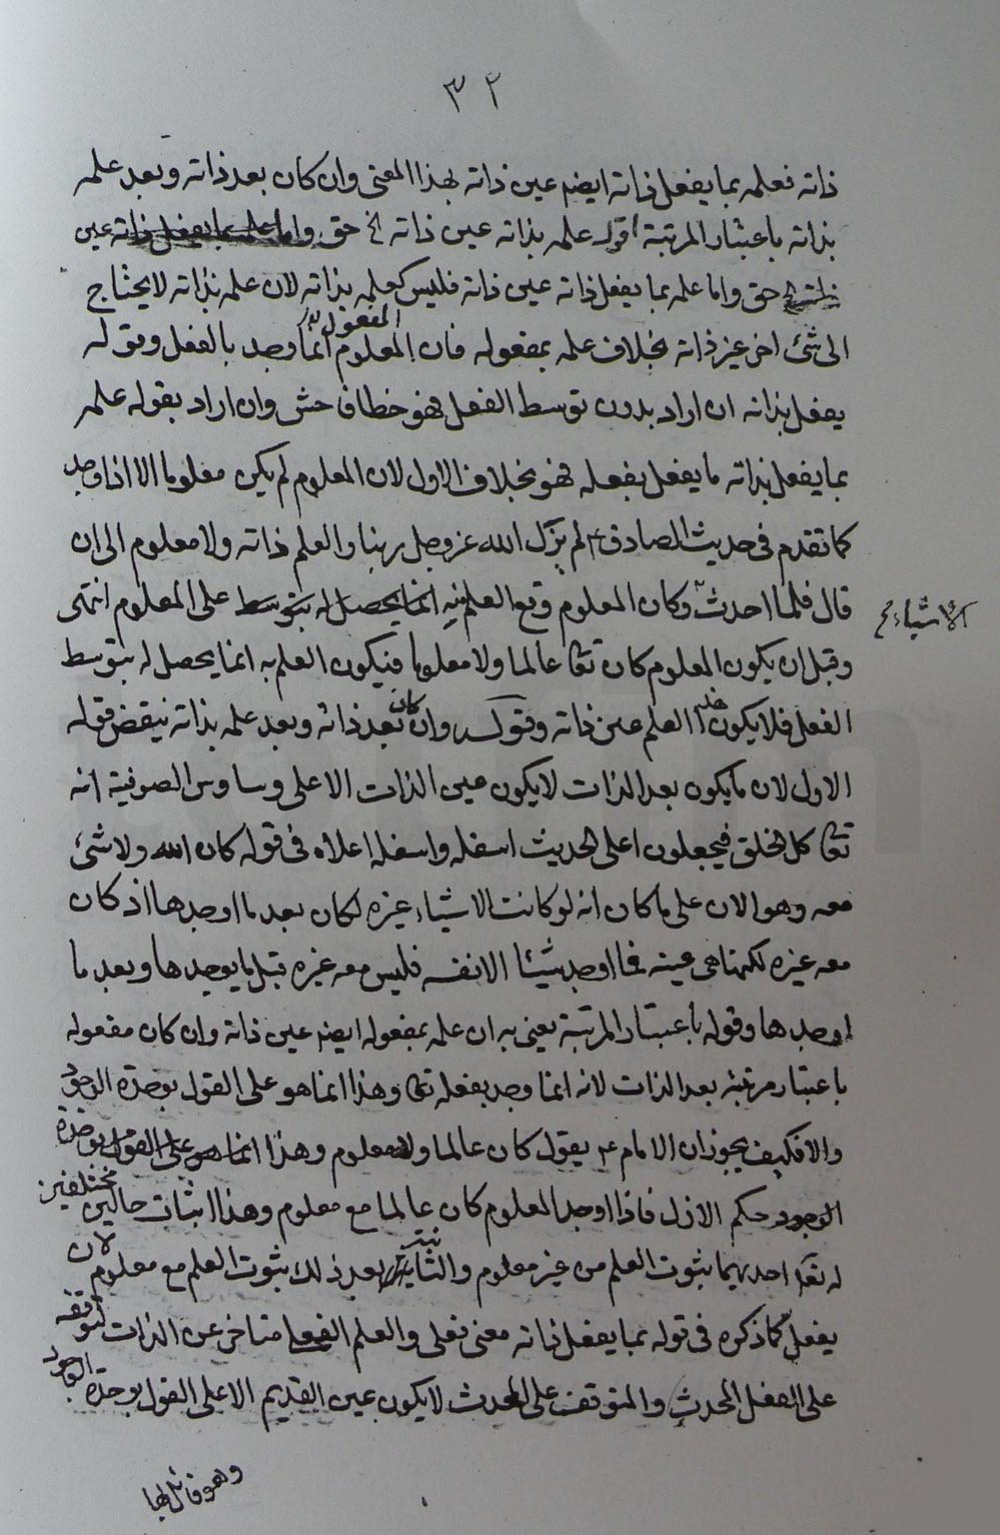 ٣٢
ذاته فعلمه بما يفعل ذاته ايضا عين ذاته بهذا المعنى وان كان بعد ذاته وبعد علمه
بذاته باعتبار المرتبة اقول علمه بذاته عين ذاته الخ حق واما علمه بما يفعل ذاته عين
حق واما علمه بما يفعل ذاته عين ذاته فليس كعلمه بذاته لان علمه بذاته لا يحتاج
الى شئ اخر غير ذاته بخلاف علمه بمفعوله فان المعلوم المفعول به انما وجد بالفعل وقوله
يفعل بذاته ان اراد بدون توسط الفعل فهو خطا فاحش وان اراد بقوله علمه
بما يفعل بذاته ما يفعل بفعله فهو بخلاف الاول لان المعلوم لم يكن معلوما الا اذا وجد
كما تقدم فى حديث الصادق ع لم يزل الله عز وجل ربنا والعلم ذاته ولا معلوم الى ان
قال فلما احدث الاشياء وكان المعلوم وقع العلم منه انما يحصل له بتوسط على المعلوم انتهى
وقبل ان يكون المعلوم كان تعا عالما ولا معلوما فيكون العلم به انما يحصل له بتوسط
الفعل فلا يكون هذا العلم عين ذاته وقوله وان كان بعد ذاته وبعد علمه بذاته ينقض قوله
الاول لان ما يكون بعد الذات لا يكون عين الذات الا على وساوس الصوفية انه
تعا كل الخلق فيجعلون اعلى الحديث اسفله واسفله اعلاه فى قوله كان الله ولا شئ
معه وهو الان على ما كان انه لو كانت الاشياء غيره لكان بعد ما اوجدها اذ كان
معه غيره لكنها هى عينه فما اوجد شيئا الا نفسه فليس معه غيره قبل ما يوجدها وبعد ما
اوجدها وقوله باعتبار المرتبة يعنى به ان علمه بمفعوله ايضا عين ذاته وان كان مفعوله
باعتبار مرتبته بعد الذات لانه انما وجد بفعله تعا وهذا انما هو على القول بوحدة الوجود
والا فكيف يجوز ان الامام ع يقول كان عالما ولا معلوم وهذا انما هو على القول بوحدة
الوجود حكم الازل فاذا اوجد المعلوم كان عالما مع معلوم وهذا اثبات حالين مختلفين
له تعا احديهما ثبوت العلم من غير معلوم والثانية بعد ذلك ثبوت العلم مع معلوم لان
يفعل كما ذكره فى قوله بما يفعل ذاته معنى فعلى والعلم الفعلى متاخر عن الذات لتوقفه
على الفعل المحدث والمتوقف على المحدث لا يكون عين القديم الا على القول بوحدة الوجود
وهو قائل بها